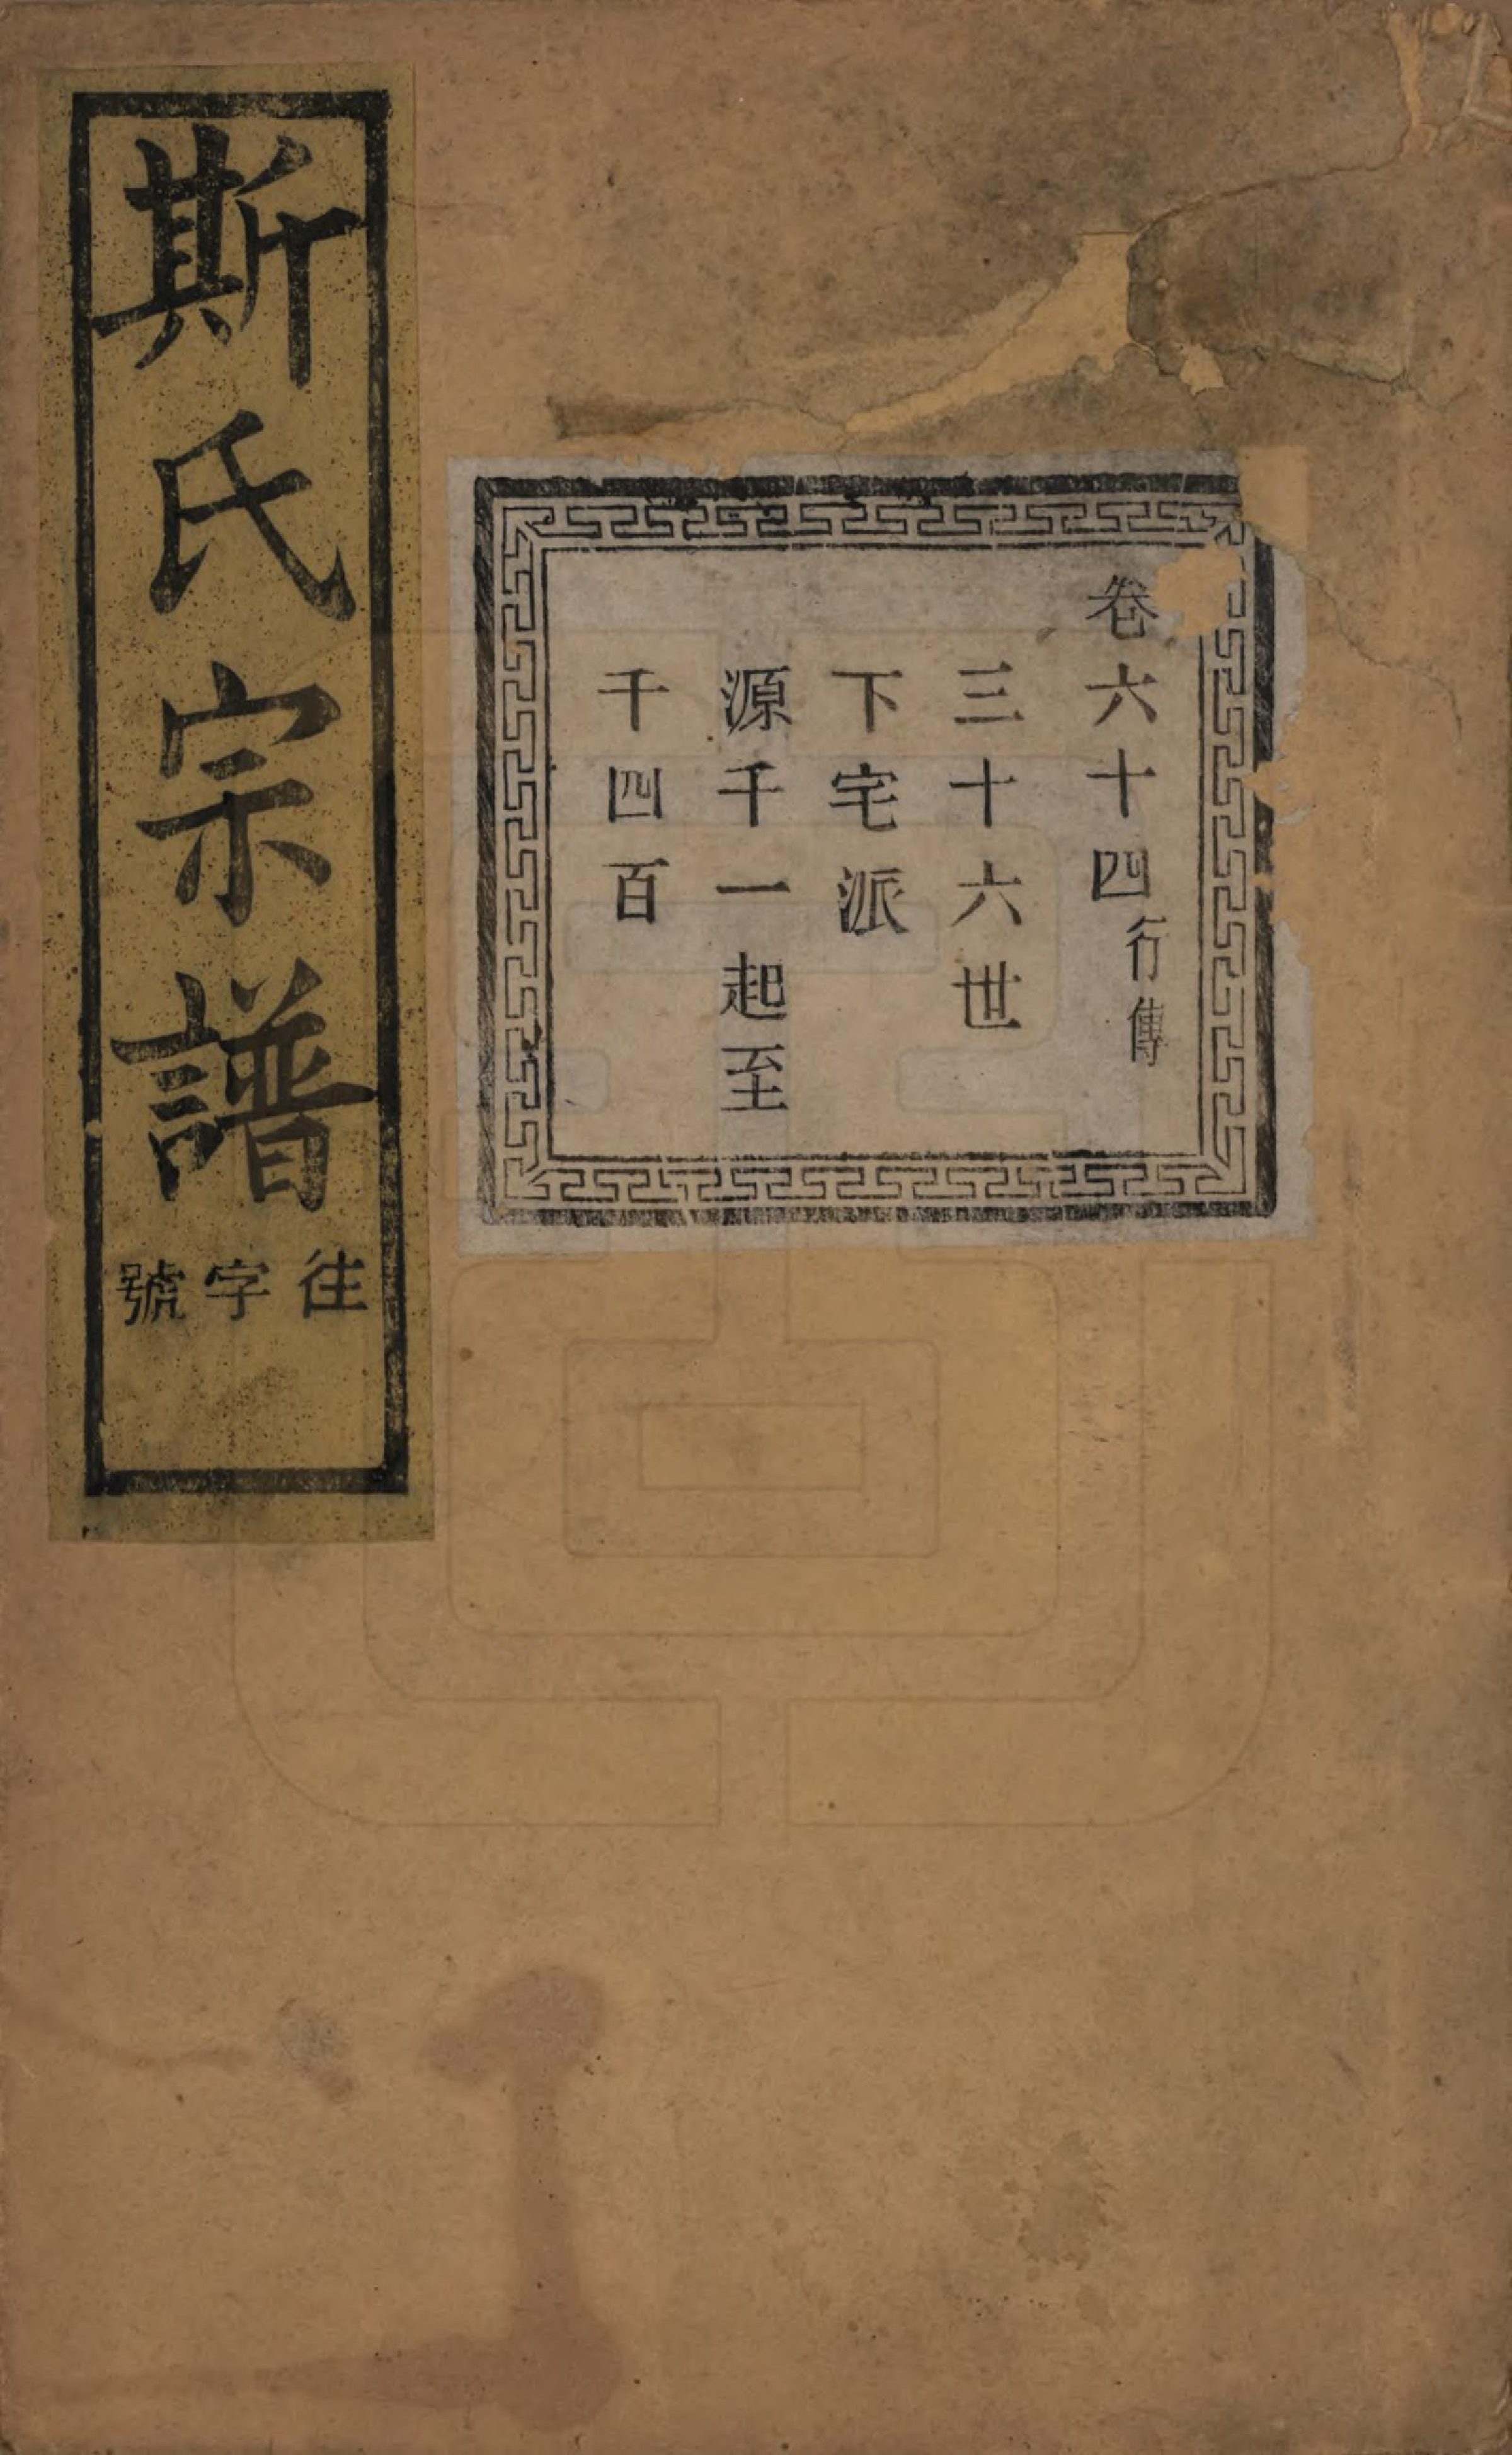 斯氏宗譜
往字號
卷六十四行傳
三十六世
下宅派
源千一起至
千四百